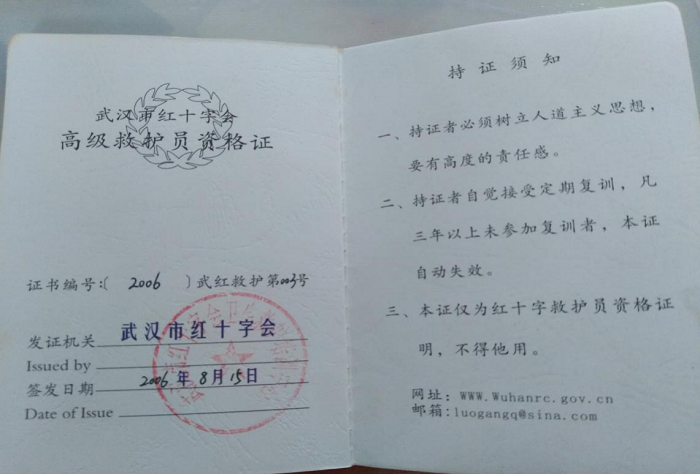 武汉市红十字会
高级救护员资格证
证书编号:〔 2006 〕武红救护第003号
发证机关 武汉市红十字会
Issued by
签发日期 2006年8月15日
Date of Issue
持证须知
一、持证者必须树立人道主义思想，
要有高度的责任感。
二、持证者自觉接受定期复训，凡
三年以上未参加复训者，本证
自动失效。
三、本证仅为红十字救护员资格证
明，不得他用。
网址: WWW.Wuhanrc.gov.cn
邮箱:luogangq@sina.com